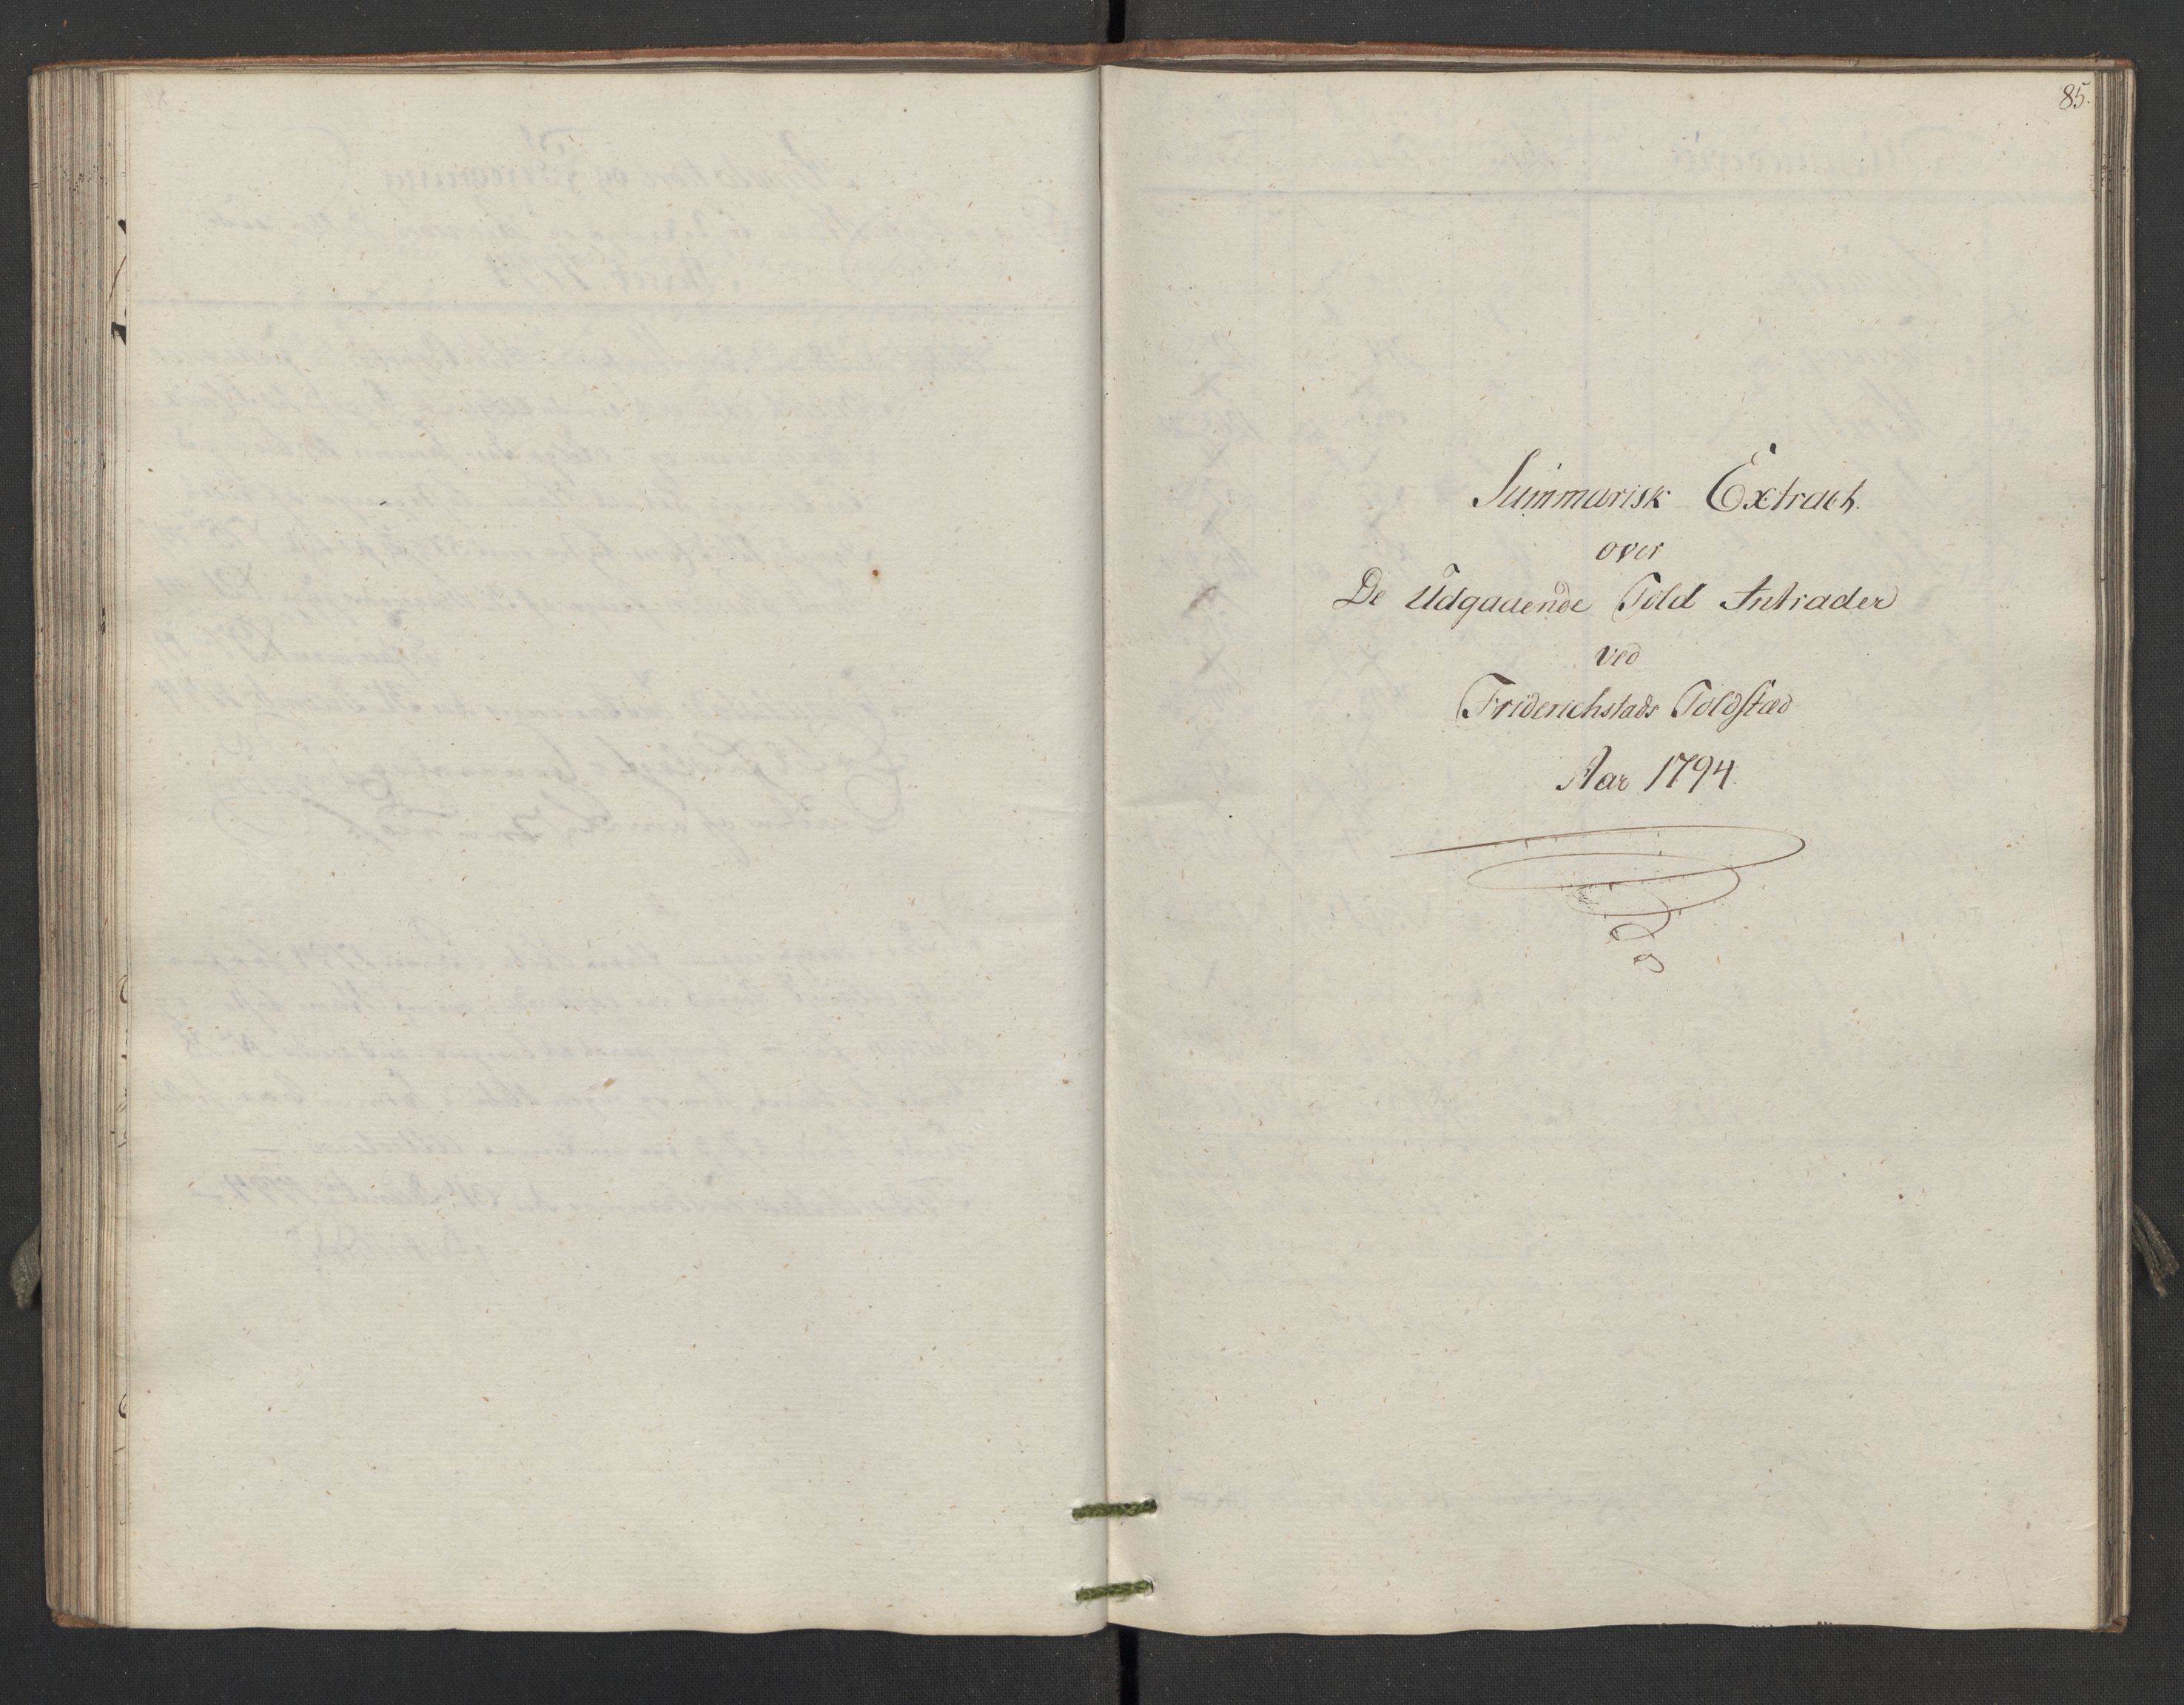 85.
Summarisk Extract
over
De Udgaaende Told Intrader
ved
Friderichstads Toldsted
Aar 1794.